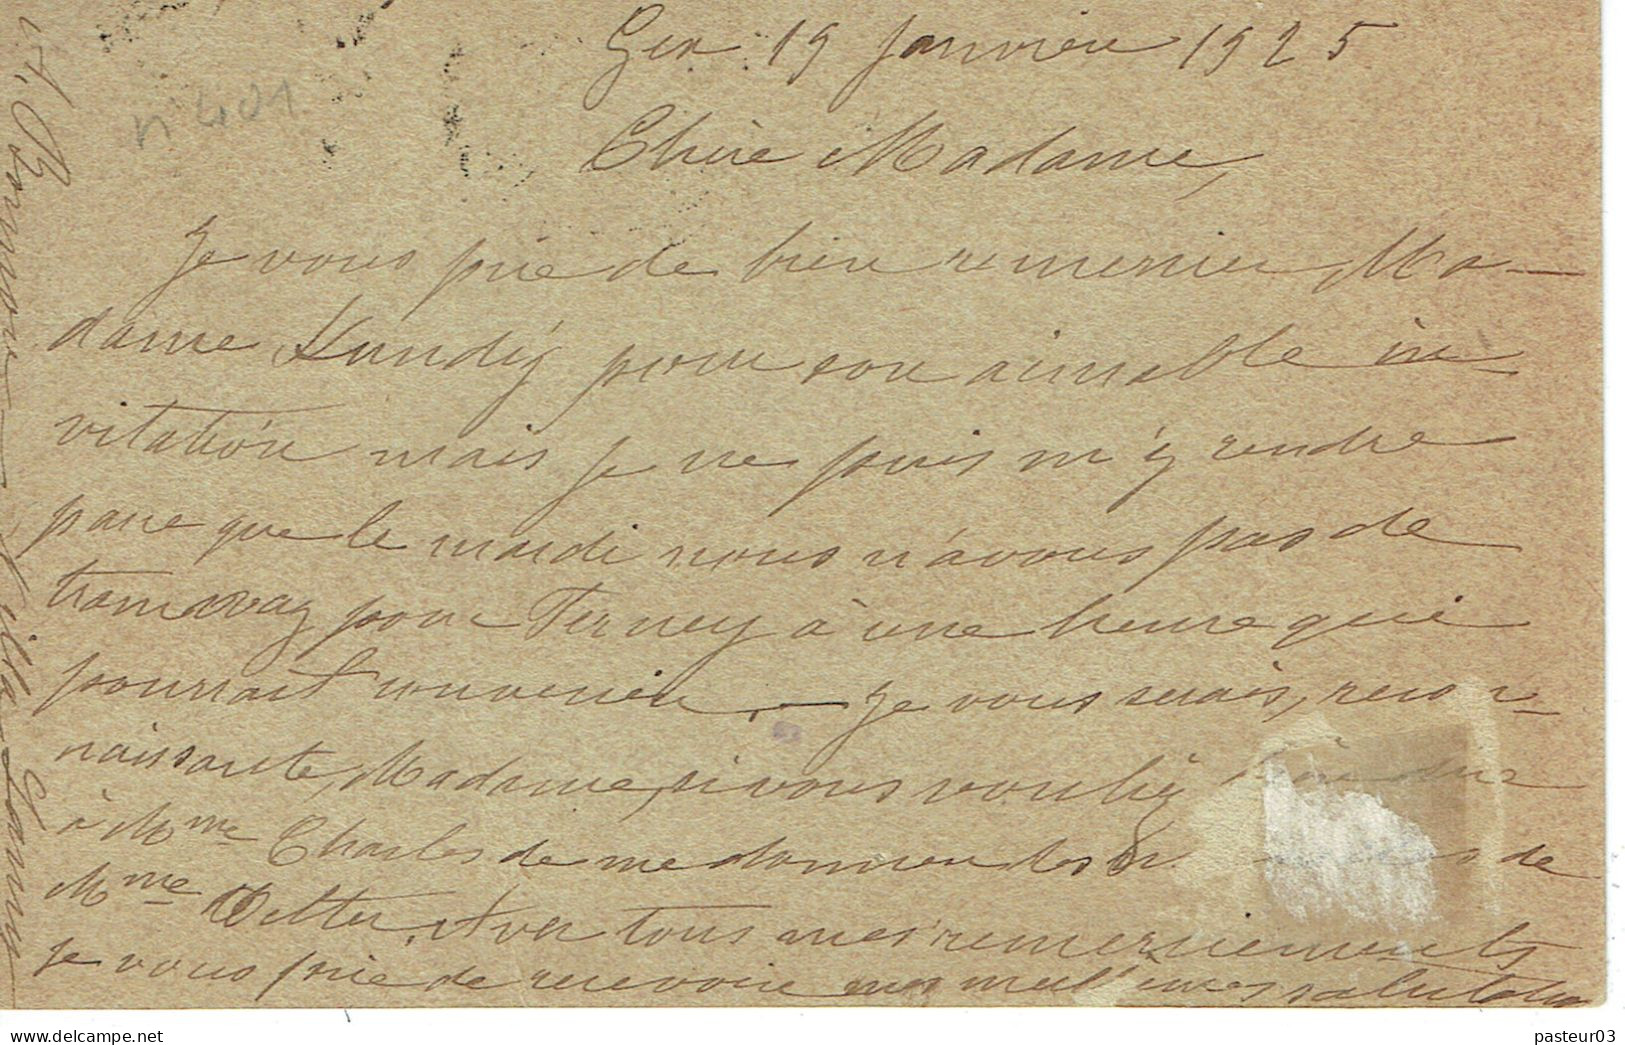 Gex 19 Janvier 1925
n 401
Chère Madame,
Je vous prie de bien remercier Ma-
dame Kundig pour son aimable in-
vitation mais je ne puis m'y rendre
parce que le mardi nous n'avons pas de
tramway pour Ferney à une heure qui
pourrait convenir. — Je vous serais, recon-
naissante, Madame, si vous vouliez dire
à Mme Charles de me donner des de
Mme Vetter. Avec tous mes remerciements
je vous prie de recevoir mes meilleures salutations
A. Villa
pasteur03